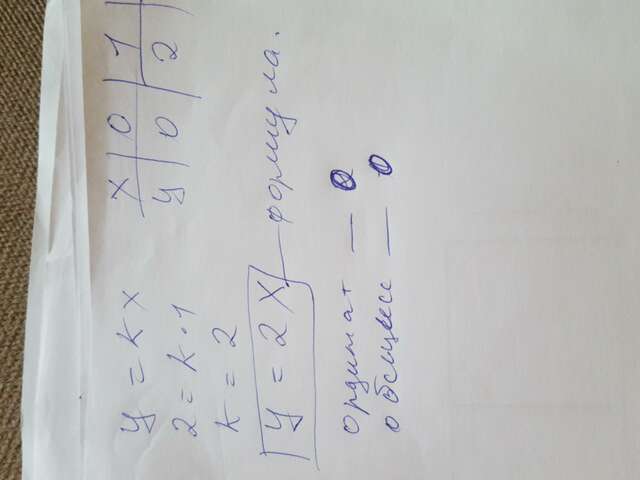 y = kx
x | 0 | 1
y | 0 | 2
2 = k·1
k = 2
y = 2x — формула.
ординат — 0
обсцисс — 0